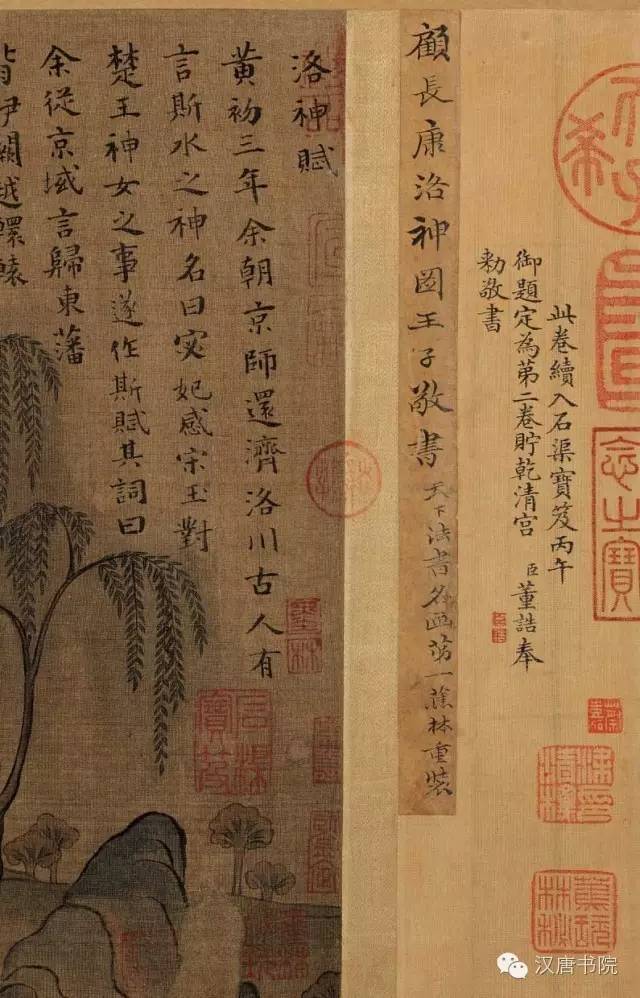 念之寶
此卷續入石渠寶笈丙午
御題定為第二卷貯乾清宮 臣董誥奉
勅敬書
顧長康洛神圖王子敬書 天下法書名畫第一蕉林重裝
洛神賦
黃初三年余朝京師還濟洛川古人有
言斯水之神名曰宓妃感宋玉對
楚王神女之事遂作斯賦其詞曰
余從京域言歸東藩
背伊闕越轘轅
汉唐书院